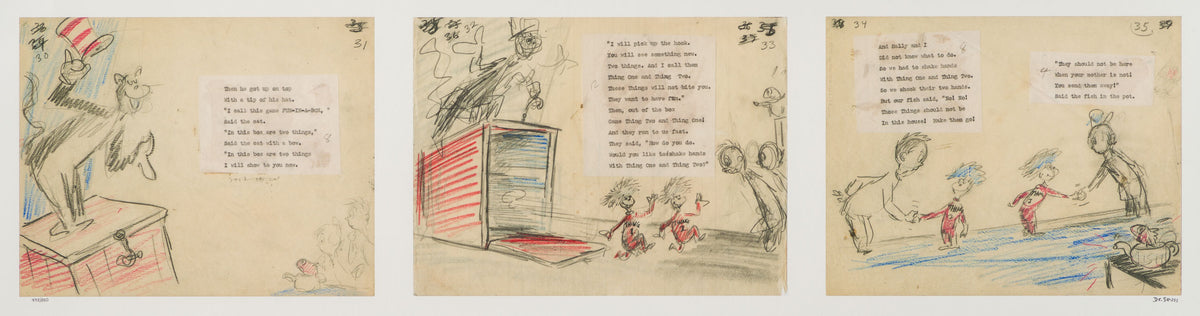 30
31
Then he got up on top
With a tip of his hat.
"I call this game FUN-IN-A-BOX,"
Said the cat.
"In this box are two things,"
Said the cat with a bow.
"In this box are two things
I will show to you now.
8
32
33
"I will pick up the hook.
You will see something new.
Two things. And I call them
Thing One and Thing Two.
These Things will not bite you.
They want to have FUN."
Then, out of the box
Came Thing Two and Thing One!
And they ran to us fast.
They said, "How do you do.
Would you like to shake hands
With Thing One and Thing Two?"
THING
1
THING
2
34
35
And Sally and I
Did not know what to do.
So we had to shake hands
With Thing One and Thing Two.
So we shook their two hands.
But our fish said, "No! No!
Those Things should not be
In this house! Make them go!
8
"They should not be here
When your mother is not!
You send them away!"
Said the fish in the pot.
4
THING
1
THING
2
Dr. Seuss